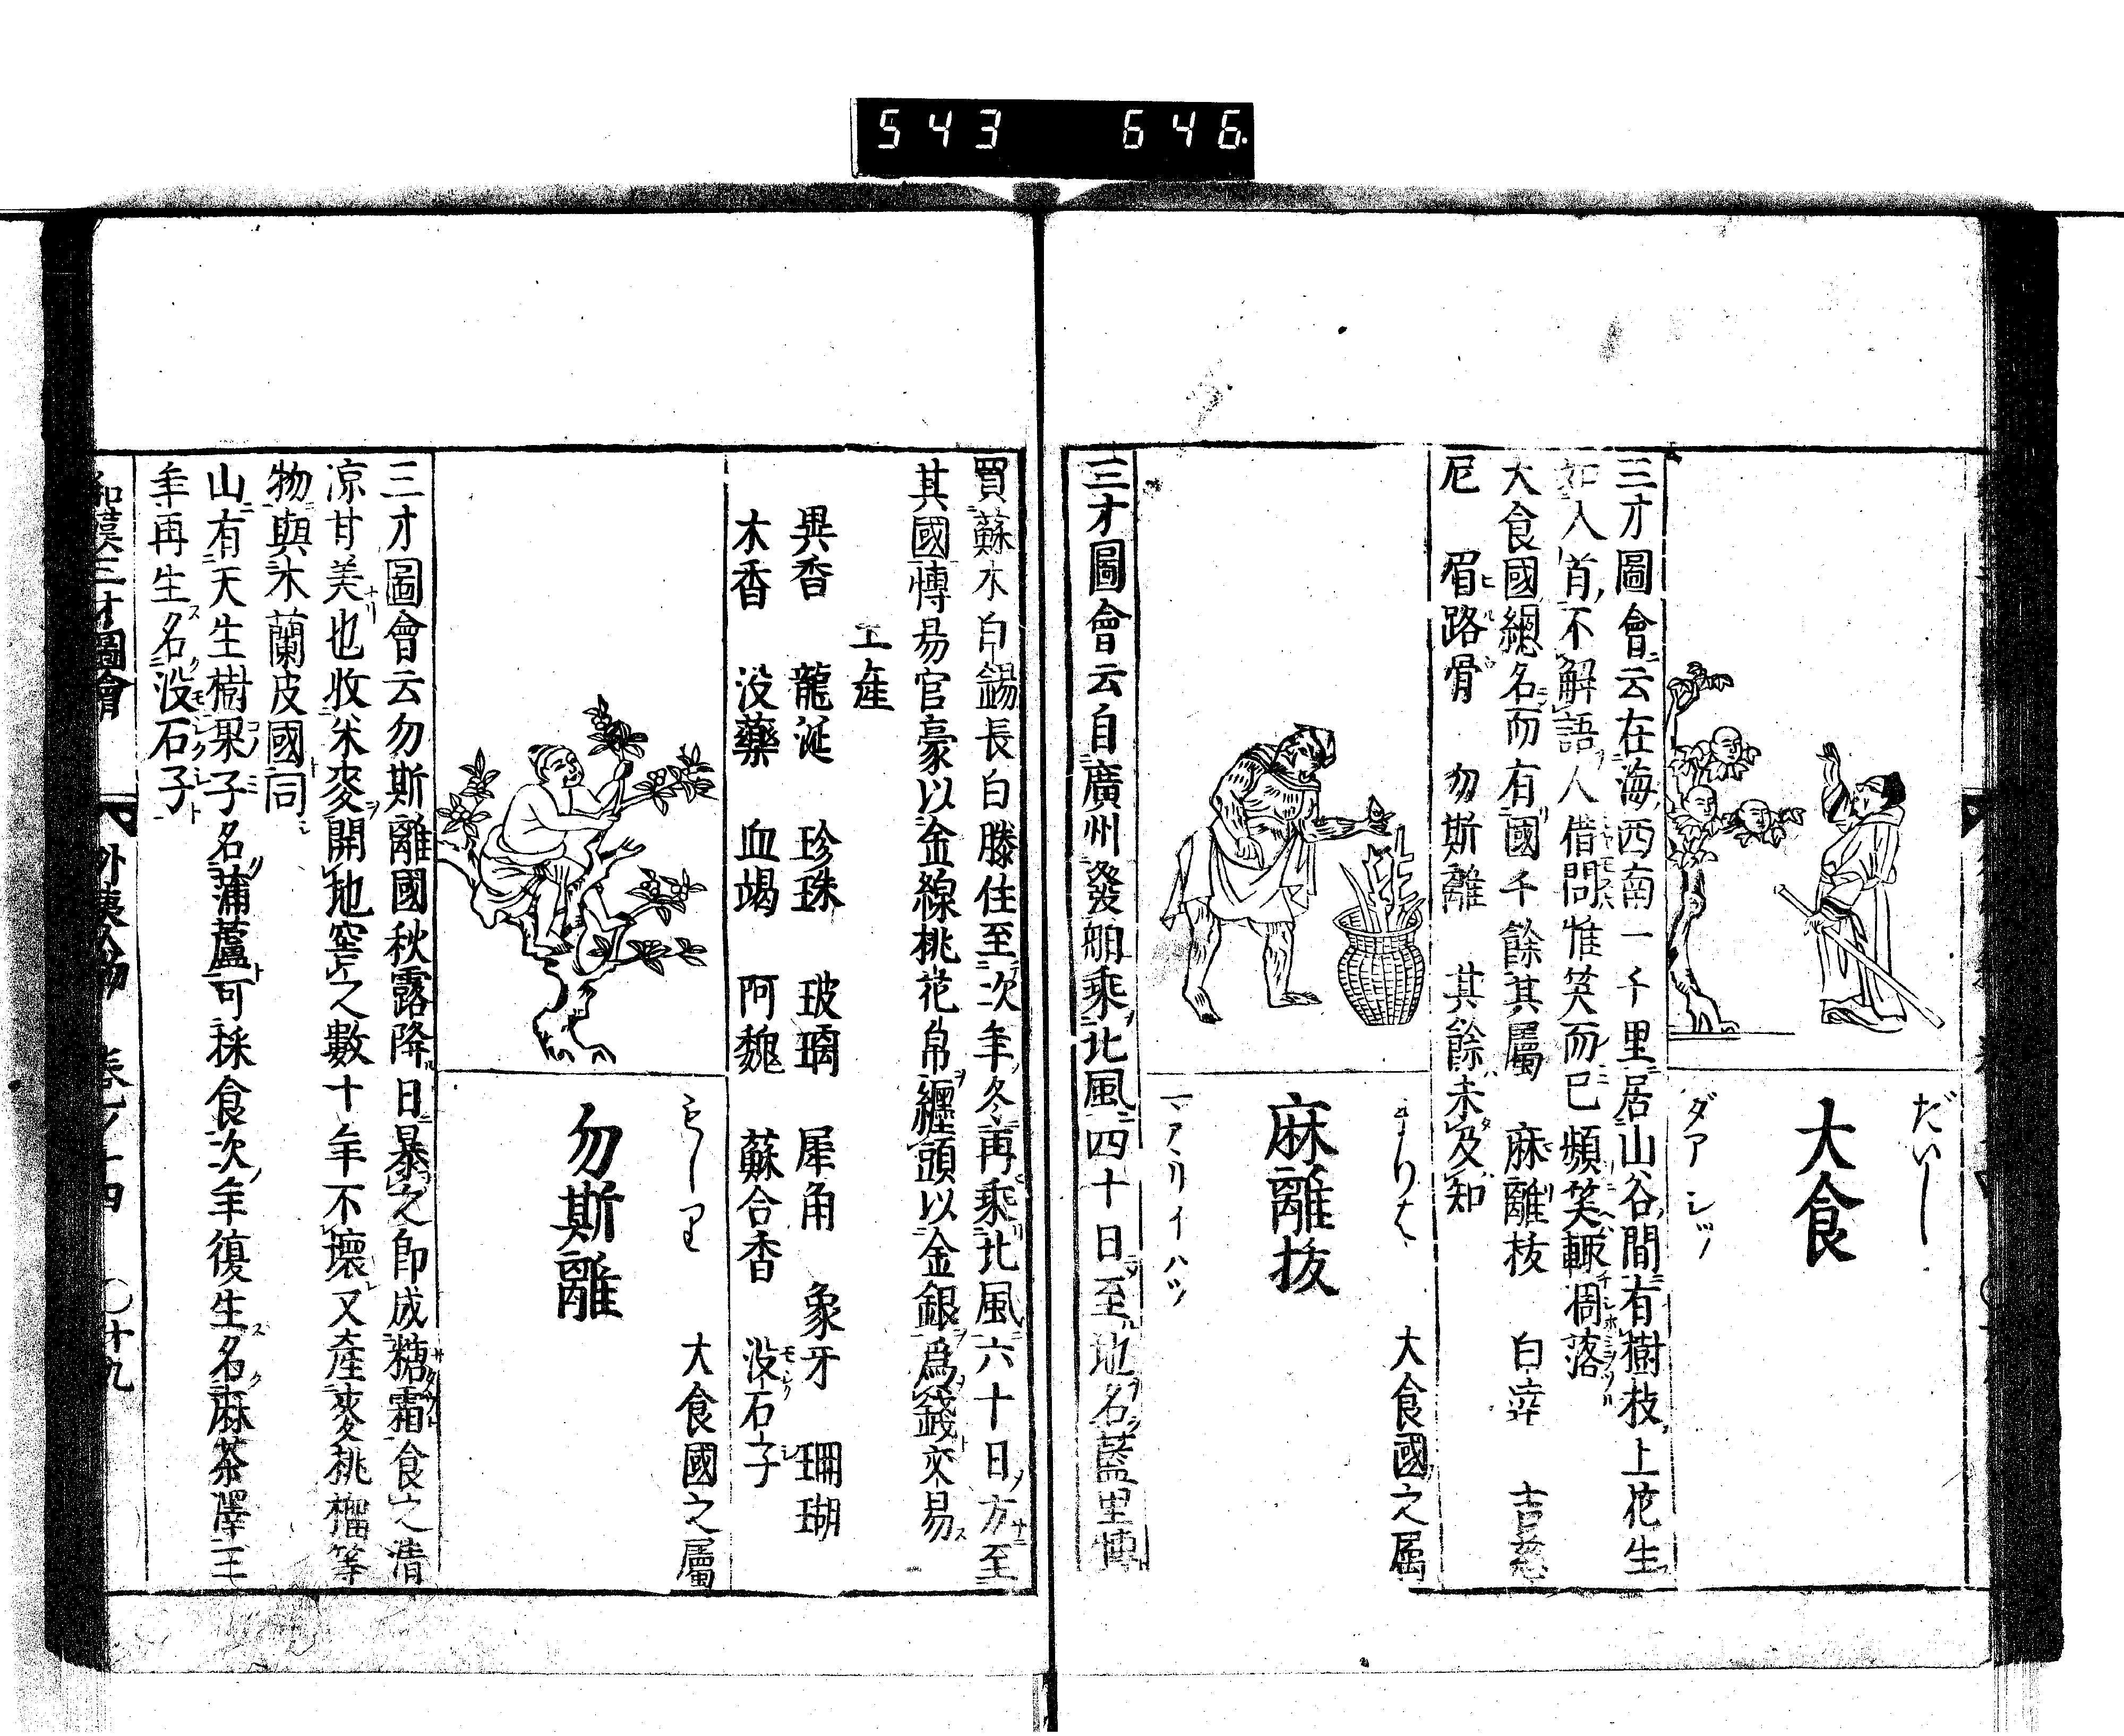 543 646
だいし
大食
ダアシツ
三才圖會云在海西南一千里居山谷間有樹枝上花生
如人首不解語人借問惟笑而已頻笑輙凋落
大食國總名而有國千餘其屬 麻離抜 白達 吉慈
尼 眉路骨 勿斯離 其餘未及知
まりは 大食國之屬
麻離抜
マアリイハツ
三才圖會云自廣州發舶乘北風四十日至地名藍里博
買蘇木白錫長白滕住至次年冬再乘北風六十日方至
其國博易官豪以金線桃花帛纒頭以金銀爲錢交易
土産
異香 龍涎 珍珠 玻璃 犀角 象牙 珊瑚
木香 没藥 血竭 阿魏 蘇合香 没石子
もしり 大食國之屬
勿斯離
三才圖會云勿斯離國秋露降日暴之即成糖霜食之清
凉甘美也收米麥開地窖之數十年不壞又產麥桃榴等
物與木蘭皮國同
山有天生樹果子名蒲蘆可採食次年復生名麻茶澤三
年再生名没石子
和漢三才圖會 外夷人物 卷之十四 〇十九